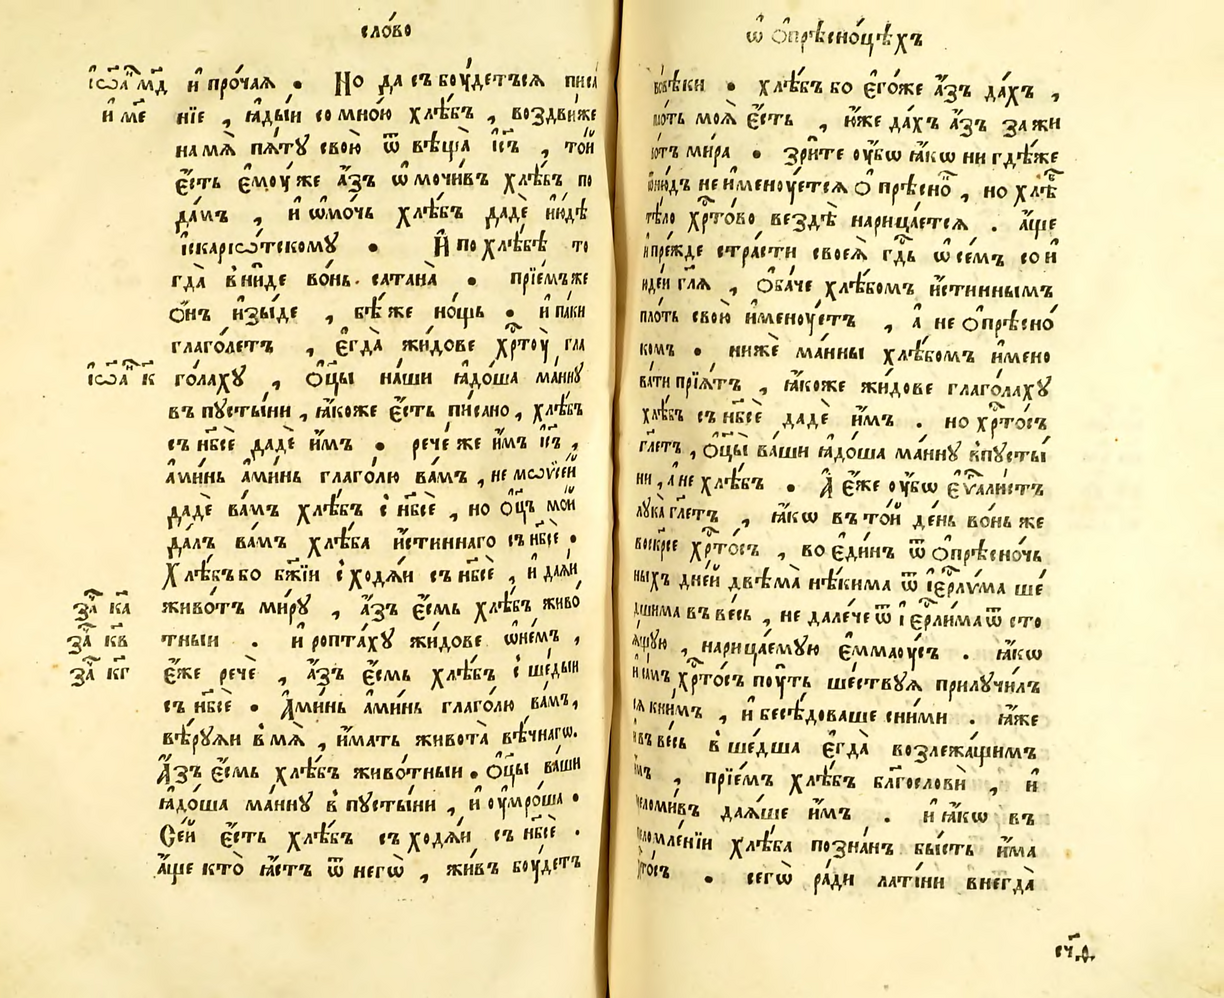 сло́во
і҆ѡа҃ мд и҆ про́чаѧ . Но да съ боу́детъсѧ писа
и҆ ме нїе , ꙗ҆ды́и со мно́ю хлѣ́бъ , воздви́же
на мѧ̀ пѧтꙋ̀ свою̀ ѿ вѣща̀ і҆с҃ъ , то́и
є҆́сть є҆мꙋ́ же а҆́зъ ѡ҆мочи́въ хлѣ́бъ по
да́мъ , и҆ ѡ҆мо́чь хлѣ́бъ дадѐ і҆ю́дѣ
і҆скарїѡ́тскомꙋ . И҆ по хлѣ́бѣ то
гда̀ вни́де во́нь сатана̀ . прїе́мъ же
ѻ҆́нъ и҆зы́де , бѣ́ же но́щь . и҆ па́ки
глаго́летъ , є҆гда̀ жи́дове хрⷭ҇тоу̀ гла
і҆ѡа҃ к го́лахꙋ , ѻ҆ц҃ы на́ши ꙗ҆до́ша ма́ннꙋ
въ пꙋсты́ни , ꙗ҆́коже є҆́сть пи́сано , хлѣ́бъ
съ нб҃сѐ дадѐ и҆̀мъ . рече́ же и҆̀мъ і҆с҃ъ ,
а҆ми́нь а҆ми́нь глаго́лю ва́мъ , не мѡѷсе́й
дадѐ ва́мъ хлѣ́бъ с нб҃сѐ , но ѻ҆ц҃ъ мо́и
да́лъ ва́мъ хлѣ́ба и҆́стиннаго съ нб҃сѐ .
Хлѣ́бъ бо бж҃їи сходѧ́и съ нб҃сѐ , и҆ даѧ́и
за҃ ка живо́тъ ми́рꙋ , а҆́зъ є҆́смь хлѣ́бъ живо
за҃ кв тныи . и҆ ропта́хꙋ жи́дове ѡ҆не́мъ ,
за҃ кг є҆́же речѐ , а҆́зъ є҆́смь хлѣ́бъ сше́дыи
съ нб҃сѐ . А҆ми́нь а҆ми́нь глаго́лю ва́мъ,
вѣ́рꙋѧи вмѧ̀ , и҆́мать живота̀ вѣ́чнагѡ.
А҆́зъ є҆́смь хлѣ́бъ живо́тныи . ѻ҆ц҃ы ва́ши
ꙗ҆до́ша ма́ннꙋ в пꙋсты́ни , и҆ оу҆мро́ша .
Се́й є҆́сть хлѣ́бъ съ ходѧ́и съ нб҃сѐ .
а҆́ще кто̀ ꙗ҆́стъ ѿ негѡ̀ , жи́въ боу́детъ
ѡ҆ ѻ҆прѣсно́цѣхъ
вовѣ́ки . хлѣ́бъ бо є҆го́же а҆́зъ да́хъ ,
пло́ть моѧ̀ є҆́сть , ю҆́же да́хъ а҆́зъ за жи
во́тъ ми́ра . зри́те оу҆́бѡ ꙗ҆́кѡ ни гдѣ́же
не и҆менꙋ́етсѧ ѻ҆прѣсно , но хлѣ́
тѣ́ло хрⷭ҇то́во вездѣ̀ нарица́етсѧ . а҆́ще
и҆ пре́жде стра́сти своеѧ̀ гдⷭ҇ь ѡ҆ се́мъ со и҆
иде́и гл҃ѧ , ѻ҆ба́че хлѣ́бомъ и҆́стиннымъ
пло́ть свою̀ и҆менꙋ́етъ , а҆ не ѻ҆прѣсно́
комъ . нижѐ ма́нны хлѣ́бомъ и҆мено
ва́ти прїѧ́тъ , ꙗ҆́коже жи́дове глаго́лахꙋ
хлѣ́бъ съ нб҃сѐ дадѐ и҆̀мъ . но хрⷭ҇то́съ
гл҃етъ , ѻ҆ц҃ы̀ ва́ши ꙗ҆до́ша ма́ннꙋ впꙋсты́
ни , а҆ не хлѣ́бъ . А҆ є҆́же оу҆́бѡ є҆ѵⷢ҇али́стъ
лꙋка̀ гл҃етъ , ꙗ҆́кѡ в то́й де́нь во́нь же
воскр҃се хрⷭ҇то́съ , во є҆ди́нъ ѿ ѻ҆прѣсно́чь
ныхъ дне́й двѣма̀ нѣ́кима ѿ і҆ерⷭ҇лꙋма ше́
дшима въ ве́сь , не дале́че ѿ і҆ерⷭ҇лима ѿ сто
ѧ́щꙋю , нарица́емꙋю є҆ммаоу́съ . ꙗ҆́кѡ
и҆ са́мъ хрⷭ҇то́съ поу́ть ше́ствꙋѧ прилꙋчи́лъ
сѧ кни́мъ , и҆ бесѣ́доваше сни́ми . ꙗ҆́же
и҆ въ ве́сь вше́дша є҆гда̀ возлежа́щимъ
и҆̀мъ , прїе́мъ хлѣ́бъ благословѝ , и҆
преломи́въ даѧ́ше и҆̀мъ . и҆ ꙗ҆́кѡ въ
преломле́нїи хлѣ́ба позна́нъ бы́сть и҆́ма
хрⷭ҇то́съ . сегѡ̀ ра́ди лати́ни внегда̀
сч҃.ѳ.